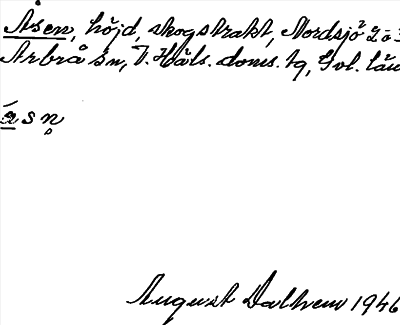 Åsen, höjd, skogstrakt, Nordsjö
Arbrå sn, V. Häls. doms. tg, Gvl. län
åsn̥
August Dalhem 1946